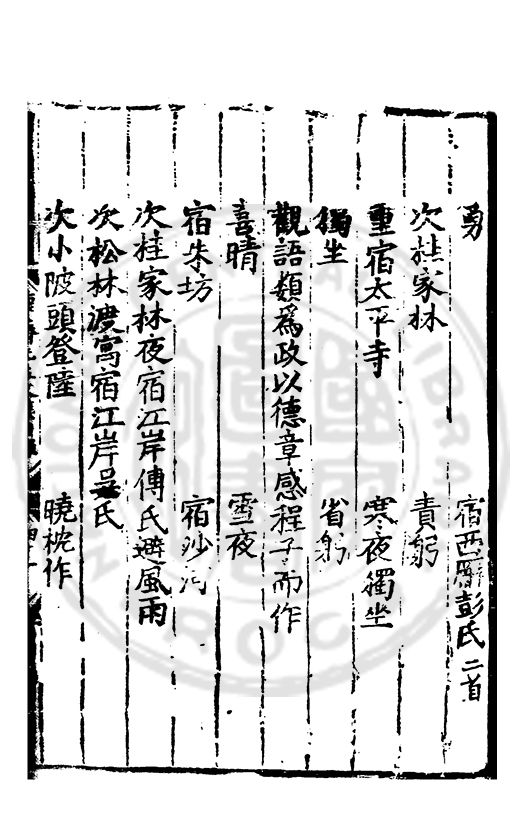 勇 宿西廨彭氏二首
次桂家林 責躬
重宿太平寺 寒夜獨坐
獨坐 省躬
觀語類為政以德章感程子而作
喜晴 雪夜
宿朱坊 宿沙河
次桂家林夜宿江岸傅氏避風雨
次松林渡寓宿江岸吳氏
次小陂頭登陸 曉枕作